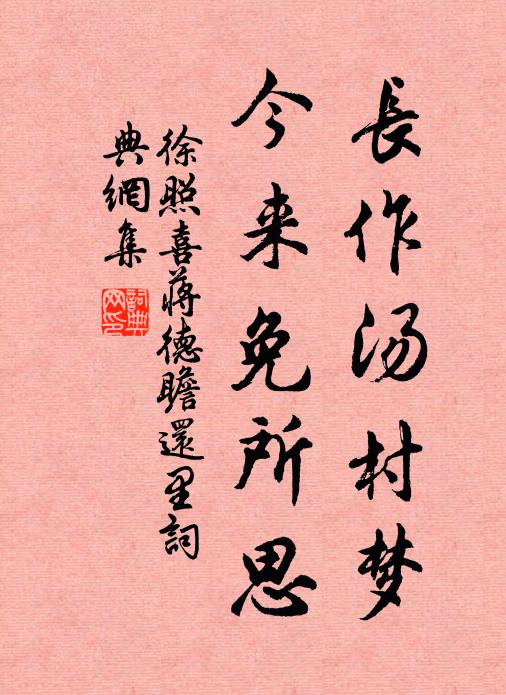 長作汤村梦
今来免所思
徐照喜蒋德瞻還里詞
典網集
詞典
网印